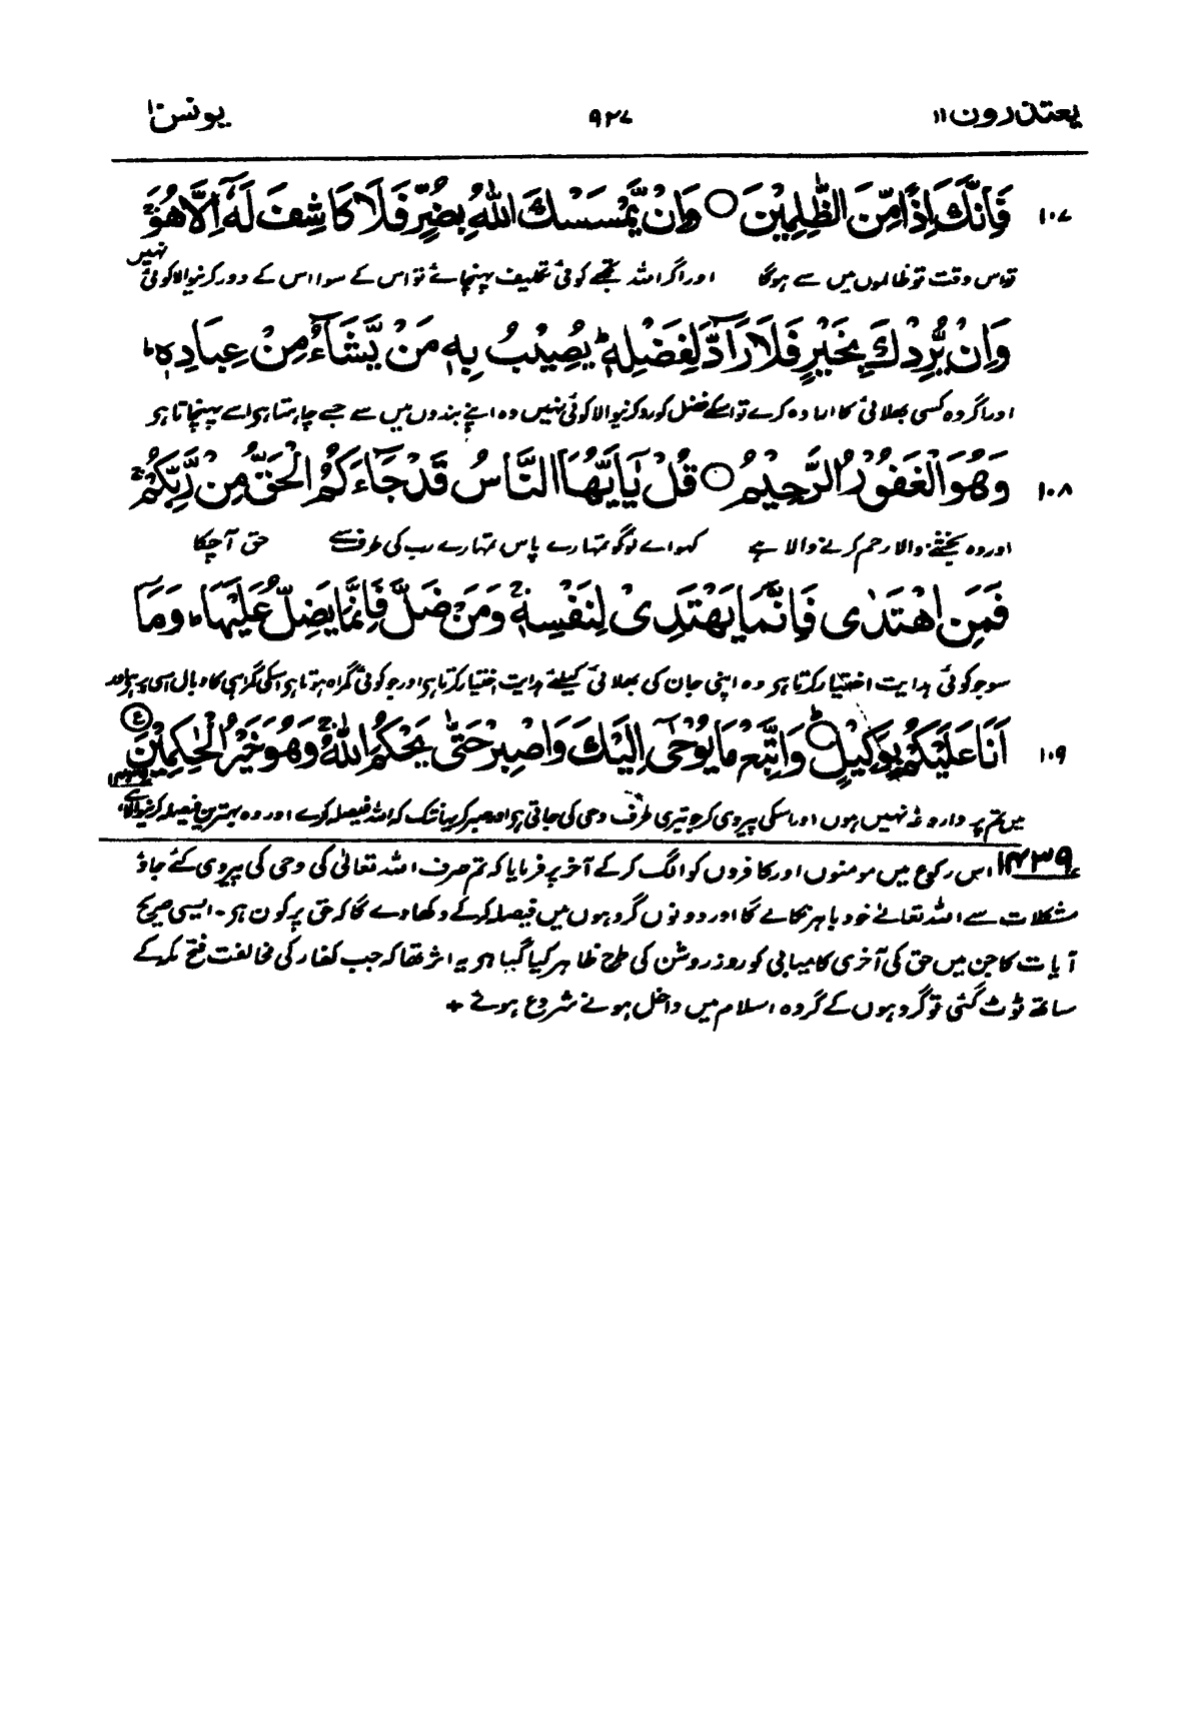 یعتذرون ۱۱ ۹۲۷ یونس ۱۰
۱۰۷ فَاِنَّكَ اِذًا مِّنَ الظّٰلِمِيْنَ ○ وَاِنْ يَّمْسَسْكَ اللّٰهُ بِضُرٍّ فَلَا كَاشِفَ لَهٗۤ اِلَّا هُوَ ۚ
تو اس وقت تو ظالموں میں سے ہوگا اور اگر اللہ تجھے کوئی تکلیف پہنچائے تو اس کے سوا اس کے دور کرنیوالا کوئی نہیں
وَاِنْ يُّرِدْكَ بِخَيْرٍ فَلَا رَآدَّ لِفَضْلِهٖ ؕ يُصِيْبُ بِهٖ مَنْ يَّشَآءُ مِنْ عِبَادِهٖ ؕ
اور اگر وہ کسی بھلائی کا ارادہ کرے تو اسکے فضل کو روکنیوالا کوئی نہیں وہ اپنے بندوں میں سے جسے چاہتا ہو اسے پہنچاتا ہو
۱۰۸ وَهُوَ الْغَفُوْرُ الرَّحِيْمُ ○ قُلْ يٰۤاَيُّهَا النَّاسُ قَدْ جَآءَكُمُ الْحَقُّ مِنْ رَّبِّكُمْ ۚ
اور وہ بخشنے والا رحم کرنے والا ہے کہو اے لوگو تمہارے پاس تمہارے رب کی طرف سے حق آچکا
فَمَنِ اهْتَدٰى فَاِنَّمَا يَهْتَدِىْ لِنَفْسِهٖ ۚ وَمَنْ ضَلَّ فَاِنَّمَا يَضِلُّ عَلَيْهَا ۚ وَمَاۤ
سو جو کوئی ہدایت اختیار کرتا ہو وہ اپنی جان کی بھلائی کیلئے ہدایت اختیار کرتا ہو اور جو کوئی گمراہ ہوتا ہو اسکی گمراہی کا وبال اسی پر ہو اور
۱۰۹ اَنَا عَلَيْكُمْ بِوَكِيْلٍ ○ وَاتَّبِعْ مَا يُوْحٰۤى اِلَيْكَ وَاصْبِرْ حَتّٰى يَحْكُمَ اللّٰهُ ۚ وَهُوَ خَيْرُ الْحٰكِمِيْنَ ع ۱۴۳۹
میں تم پر داروغہ نہیں ہوں اور اسکی پیروی کر جو تیری طرف وحی کی جاتی ہو اور صبر کر یہانتک کہ اللہ فیصلہ کرے اور وہ بہترین فیصلہ کرنیوالا ہے
۱۴۳۹ اس رکوع میں مومنوں اور کافروں کو الگ کر کے آخر پر فرمایا کہ تم صرف اللہ تعالیٰ کی وحی کی پیروی کئے جاؤ
مشکلات سے اللہ تعالیٰ خود باہر نکالے گا اور دونوں گروہوں میں فیصلہ کر کے دکھا دے گا کہ حق پر کون ہو۔ ایسی صریح
آیات کا جن میں حق کی آخری کامیابی کو روز روشن کی طرح ظاہر کیا گیا ہو یہ اثر تھا کہ جب کفار کی مخالفت فتح مکہ کے
ساتھ ٹوٹ گئی تو گروہوں کے گروہ اسلام میں داخل ہونے شروع ہوئے +